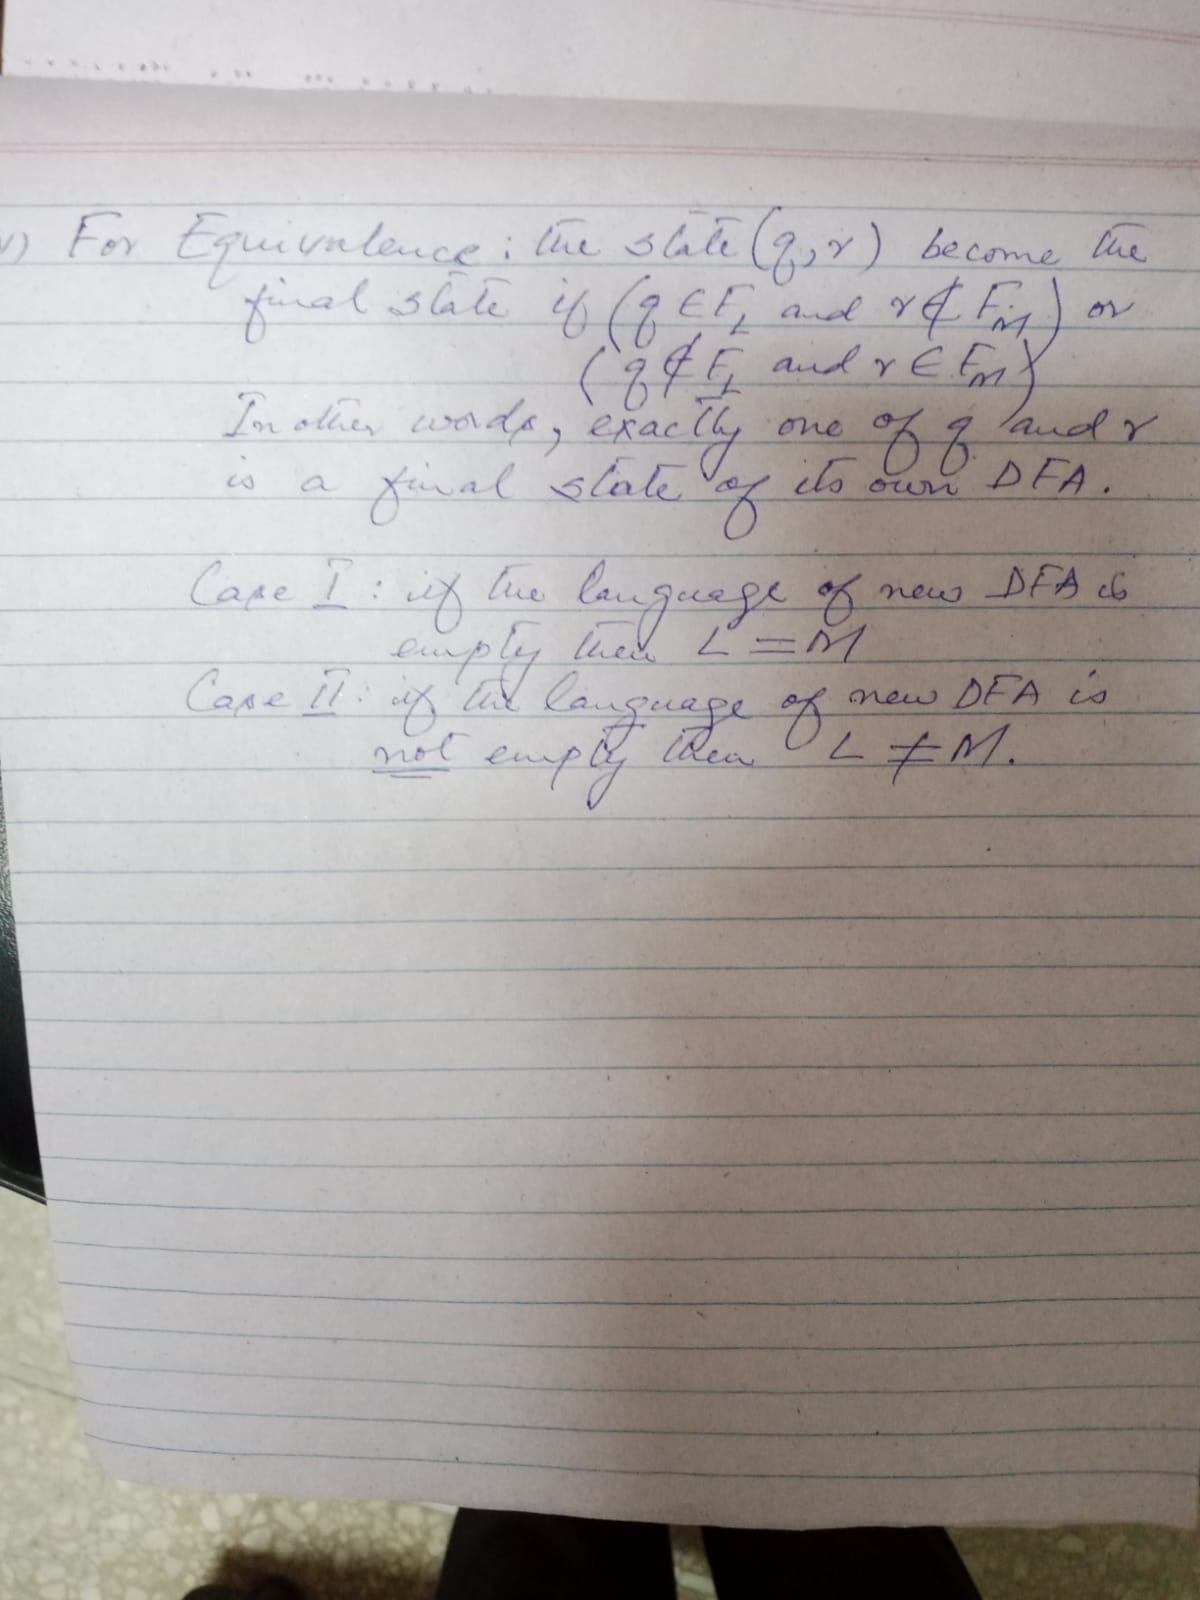 v) For Equivalence: the state (q,r) become the
final state if (q ∈ F_L and r ∉ F_M) or
(q ∉ F_L and r ∈ F_M)
In other words, exactly one of q and r
is a final state of its own DFA.
Case I: if the language of new DFA is
empty then L = M
Case II: if the language of new DFA is
not empty then L ≠ M.